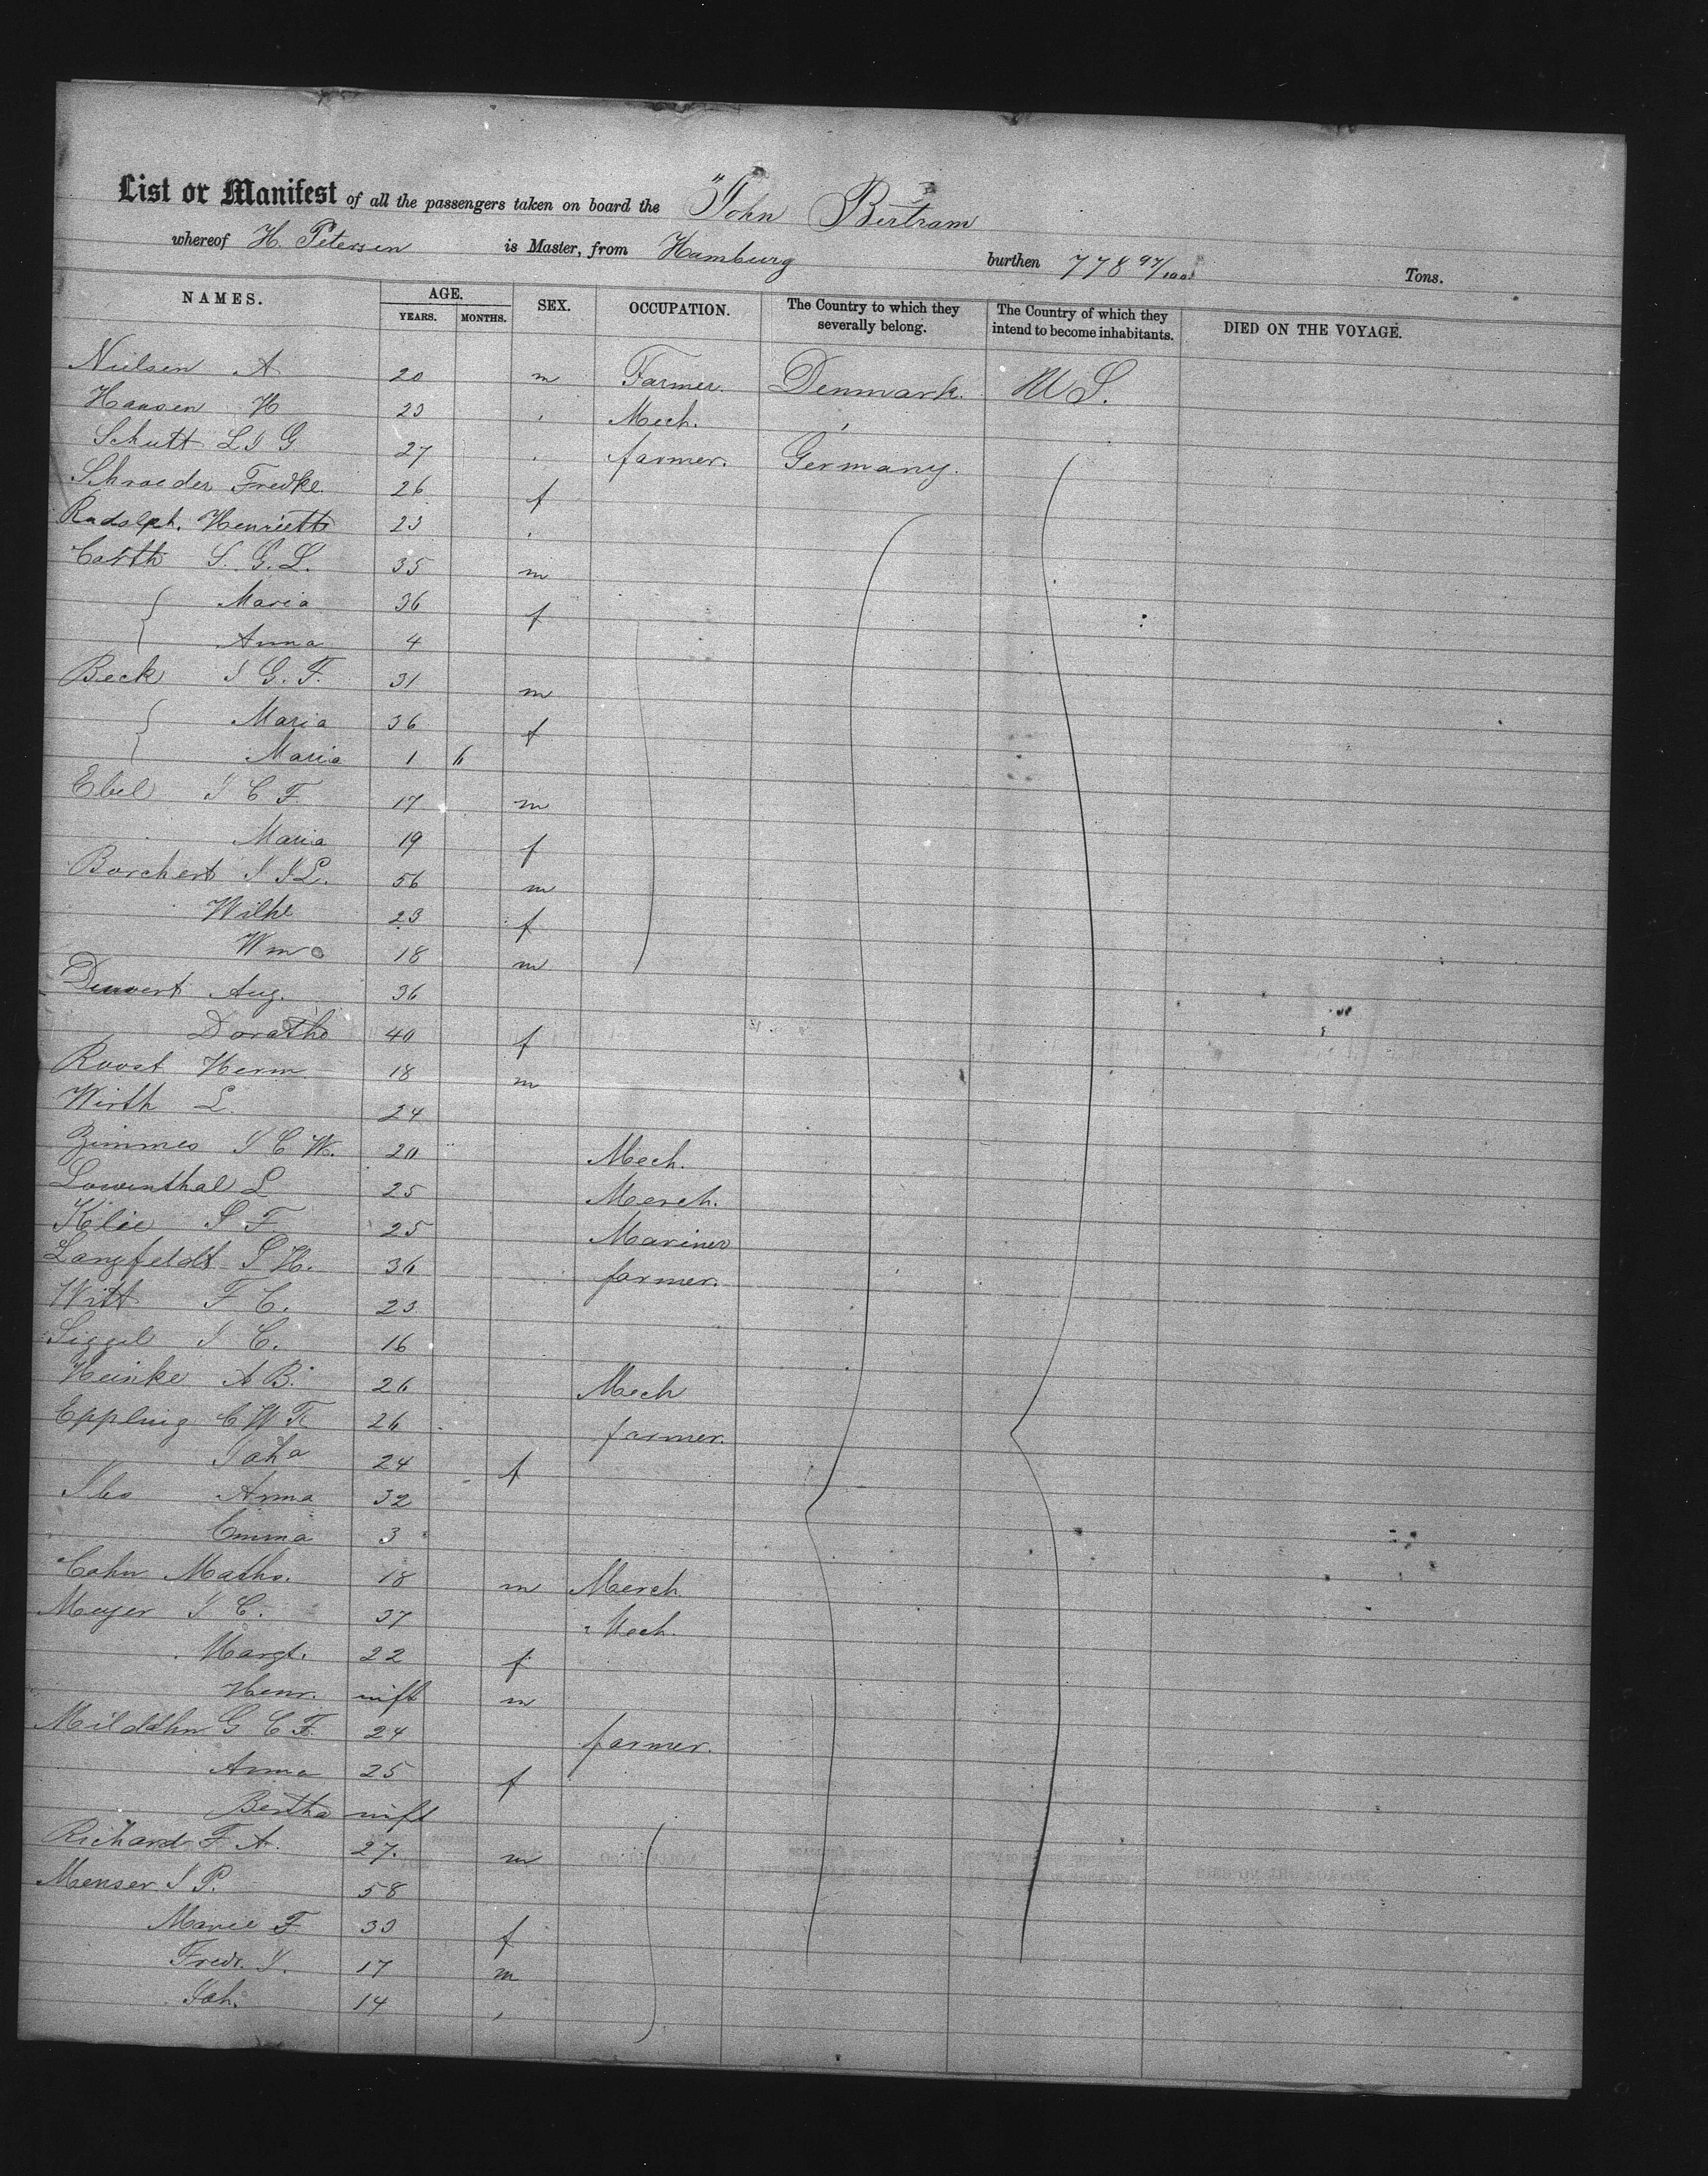 List or Manifest of all the passengers taken on board the "John Bertram
whereof H. Petersen is Master, from Hamburg burthen 778 97/100 Tons.
NAMES. AGE. SEX. OCCUPATION. The Country to which they severally belong. The Country of which they intend to become inhabitants. DIED ON THE VOYAGE.
YEARS. MONTHS.
Nielsen A 20 m Farmer. Denmark. U S.
Hansen H 23 Mech.
Schutt L I G 27 farmer. Germany.
Schroeder Fredke 26 f
Rudolph. Henriette 23
S. G. L. 35 m
Maria 36 f
Anna 4
Beck I G. F. 31 m
Maria 36 f
Maria 1 6
Ebel I C F 17 m
Maria 19 f
Borchert I I L. 56 m
Wilhe 23 f
Wm 18 m
Aug. 36
Doratha 40 f
Roost Herm 18 m
Wirth L. 24
Zimmes I C W. 20 Mech.
Lowenthal L 25 Merch.
Klie I F 25 Mariner
Langfeldt I H. 36 farmer.
Witt F C. 23
Siggel I C. 16
Heinke A B. 26 Mech
Eppling C W F. 26 farmer.
Joha 24 f
Anna 32
Emma 3
Cohn Maths. 18 m Merch.
Meyer I C. 37 Mech.
Margt. 22 f
Henr. inft m
Mildahn G C F. 24 farmer.
Anna 25 f
Bertha inft
Richard F A. 27. m
Menser I P. 58
Marie F. 33 f
Fredr. I. 17 m
Joh. 14